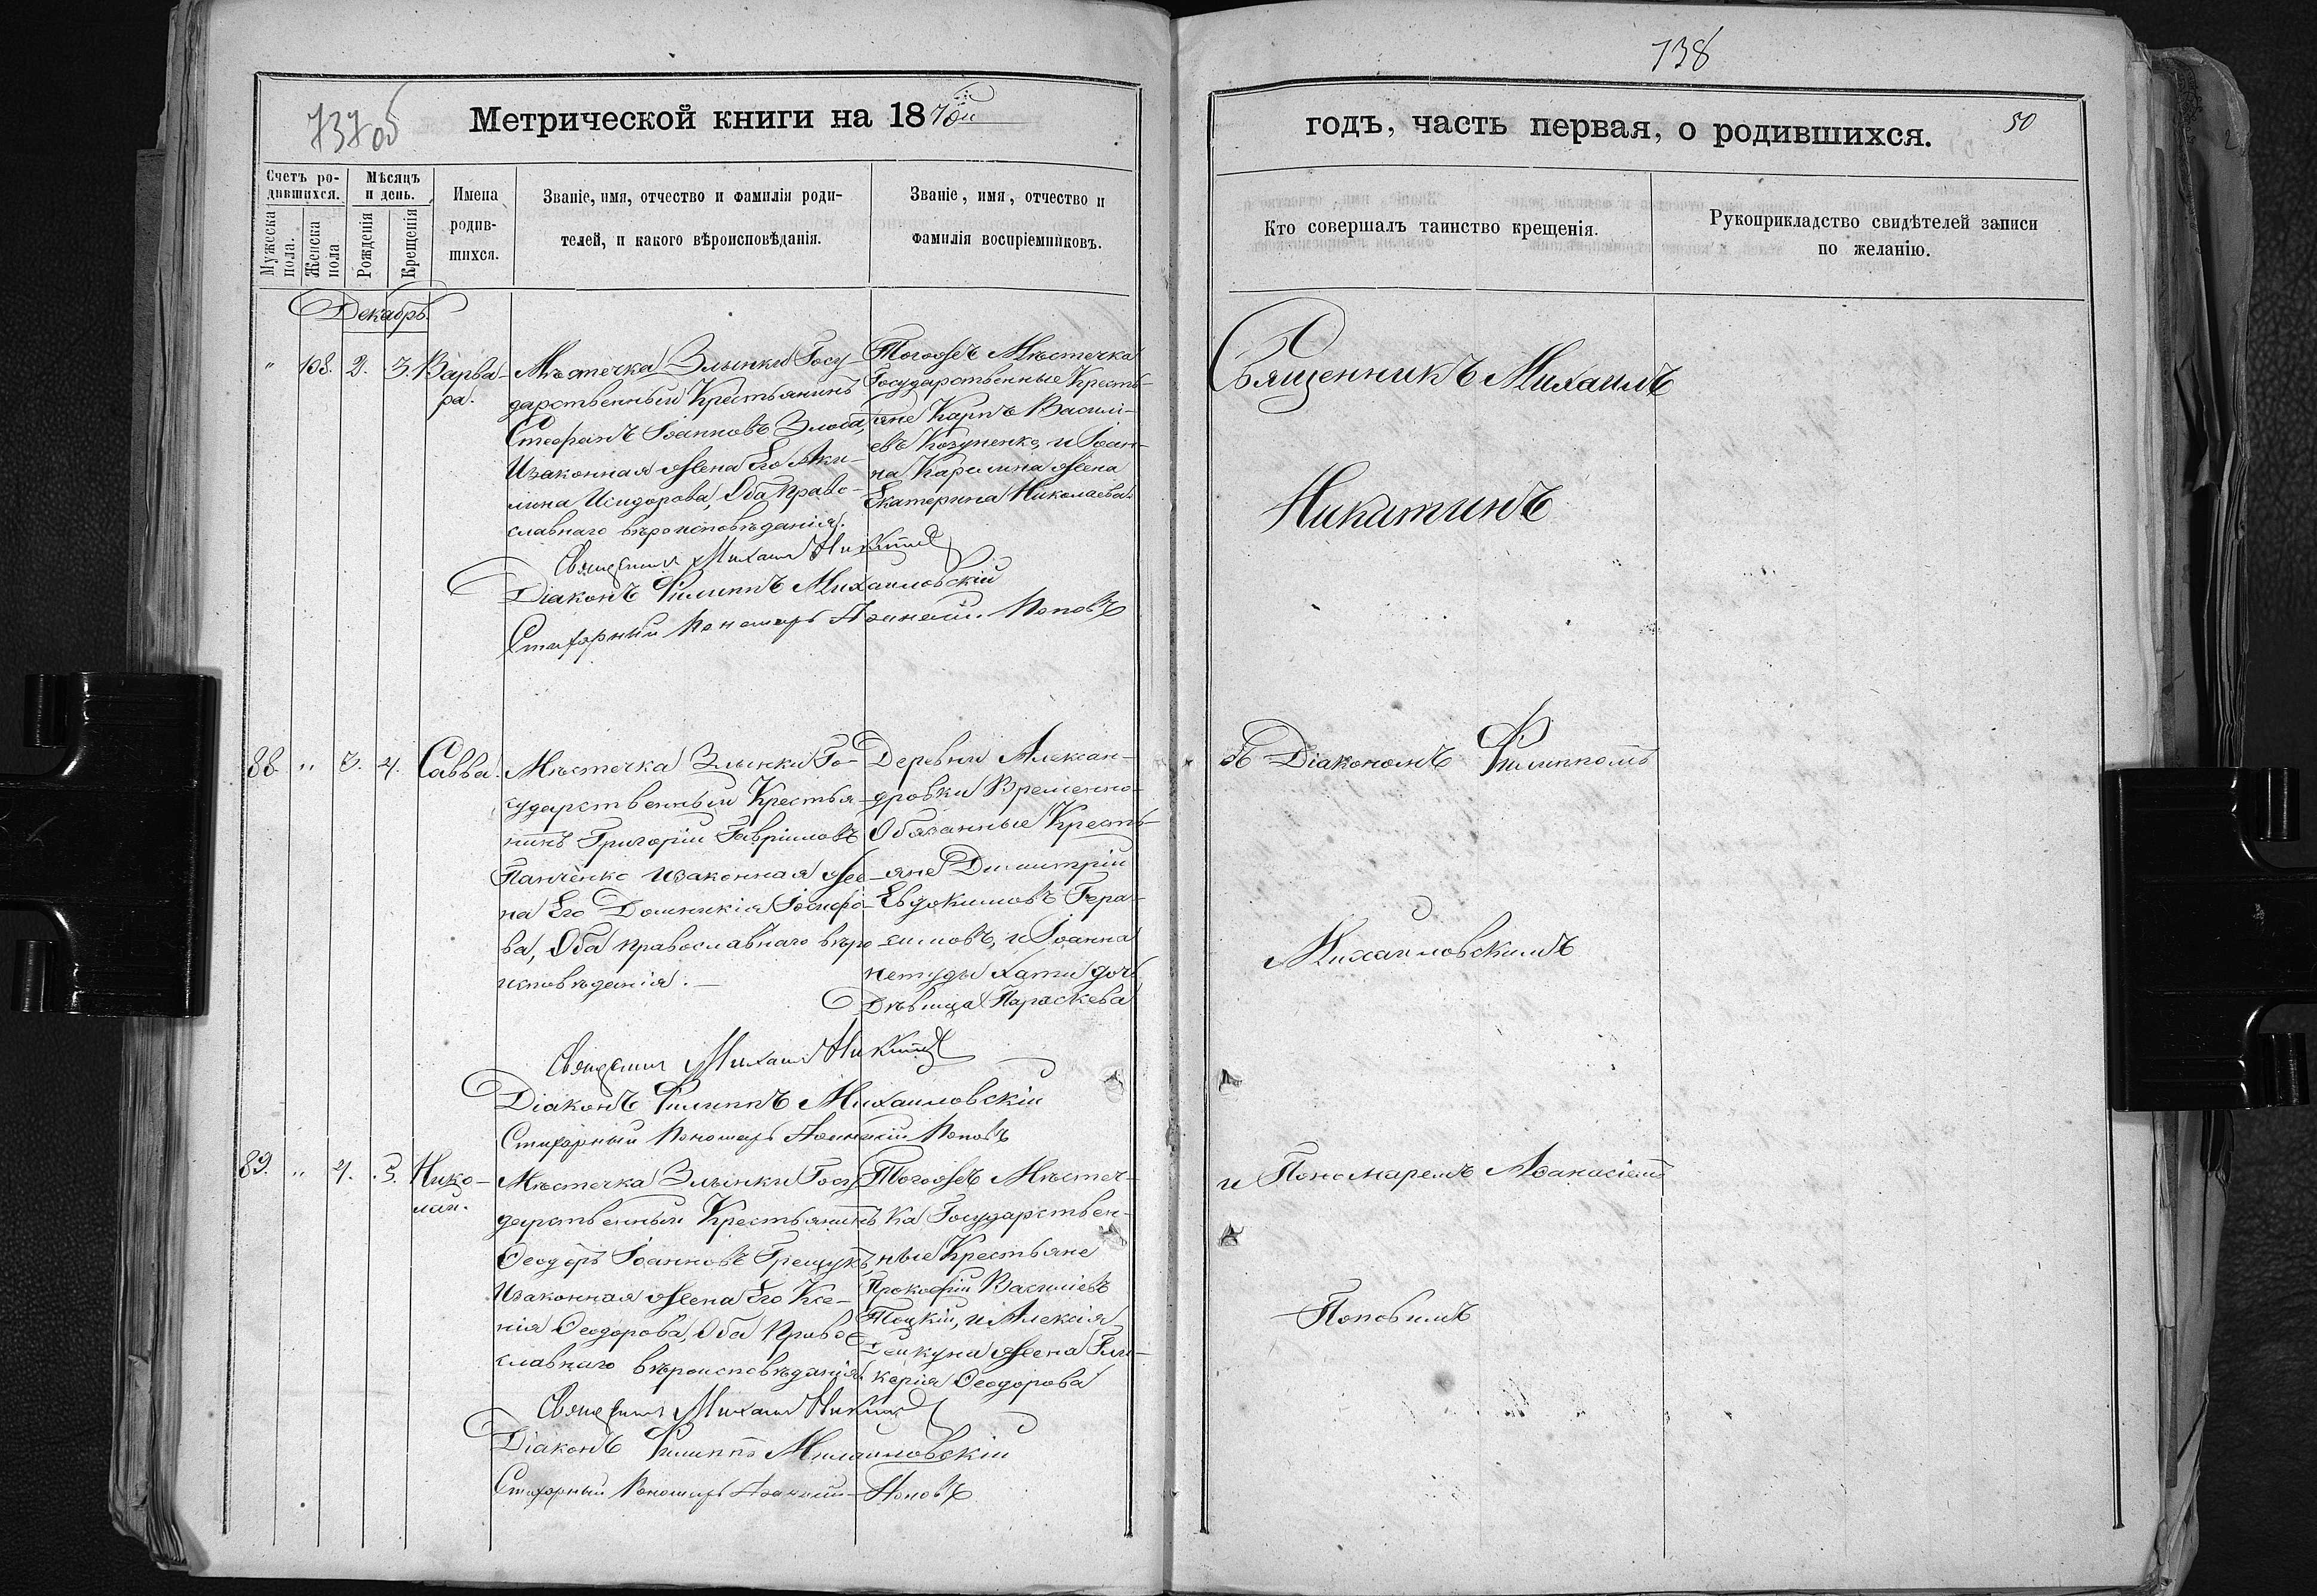 737об
Метрической книги на 1870й
Счетъ ро-
дившихся.
Мужеска пола.
Женска пола
Мѣсяцъ и день.
Рожденія
Крещенія
Имена родив-
шихся.
Званіе, имя, отчество и фамилія роди-
телей, и какого вѣроисповѣданія.
Званіе, имя, отчество и
фамилія воспріемниковъ.
Декабрь
" 108. 2. 3. Варва-
ра.
Мѣстечка Злынки Госу
дарственный Крестьянинъ
Стефанъ Іоанновъ Злоій,
Изаконная жена Его Аки-
лина Исидорова, Оба Право-
славнаго вѣроисповѣданія.
Тогожъ Мѣстечка
Государственные Кресть-
яне Карпъ Васили-
евъ Козупенко, и Іоан-
на Карилина жена
Екатерина Николаева
Священникъ Михаилъ Никитинъ
Діаконъ Филиппъ Михаиловскій
Стихарный Пономарь Аѳанасій Поповъ
88. " 3. 4. Савва.
Мѣстечка Злынки Го-
сударственный Крестья-
нинъ Григорій Гавріиловъ
Панченко Изаконная же-
на Его Домникія Іосифо-
ва, Оба православнаго вѣро-
исповѣданія.
Деревни Алексан-
дровки Временно-
Обязанные Кресть-
яне Димитрій
Евдокимовъ Гера-
симовъ, и Іоанна
Нетудыхати дочь
Дѣвица Параскева
Священникъ Михаилъ Никитинъ
Діаконъ Филиппъ Михаиловскій
Стихарный Пономарь Аѳанасій Поповъ
89. " 4. 5. Нико-
лай.
Мѣстечка Злынки Госу
дарственный Крестьянинъ
Ѳеодоръ Іоанновъ Грещукъ,
Изаконная жена Его Ксе-
нія Ѳеодорова, Оба Право-
славнаго вѣроисповѣданія.
Тогожъ Мѣстеч-
ка Государствен-
ные Крестьяне
Прокофій Василіевъ
Тоцкій, и Алексія
Дейкуна жена Гли-
керія Ѳеодорова
Священникъ Михаилъ Никитинъ
Діаконъ Филиппъ Михаиловскій
Стихарный Пономарь Аѳанасій Поповъ
738
годъ, часть первая, о родившихся.
50
Кто совершалъ таинство крещенія.
Рукоприкладство свидѣтелей записи
по желанію.
Священникъ Михаилъ
Никитинъ
съ Діакономъ Филиппомъ
Михаиловскимъ
и Пономаремъ Аѳанасіемъ
Поповымъ